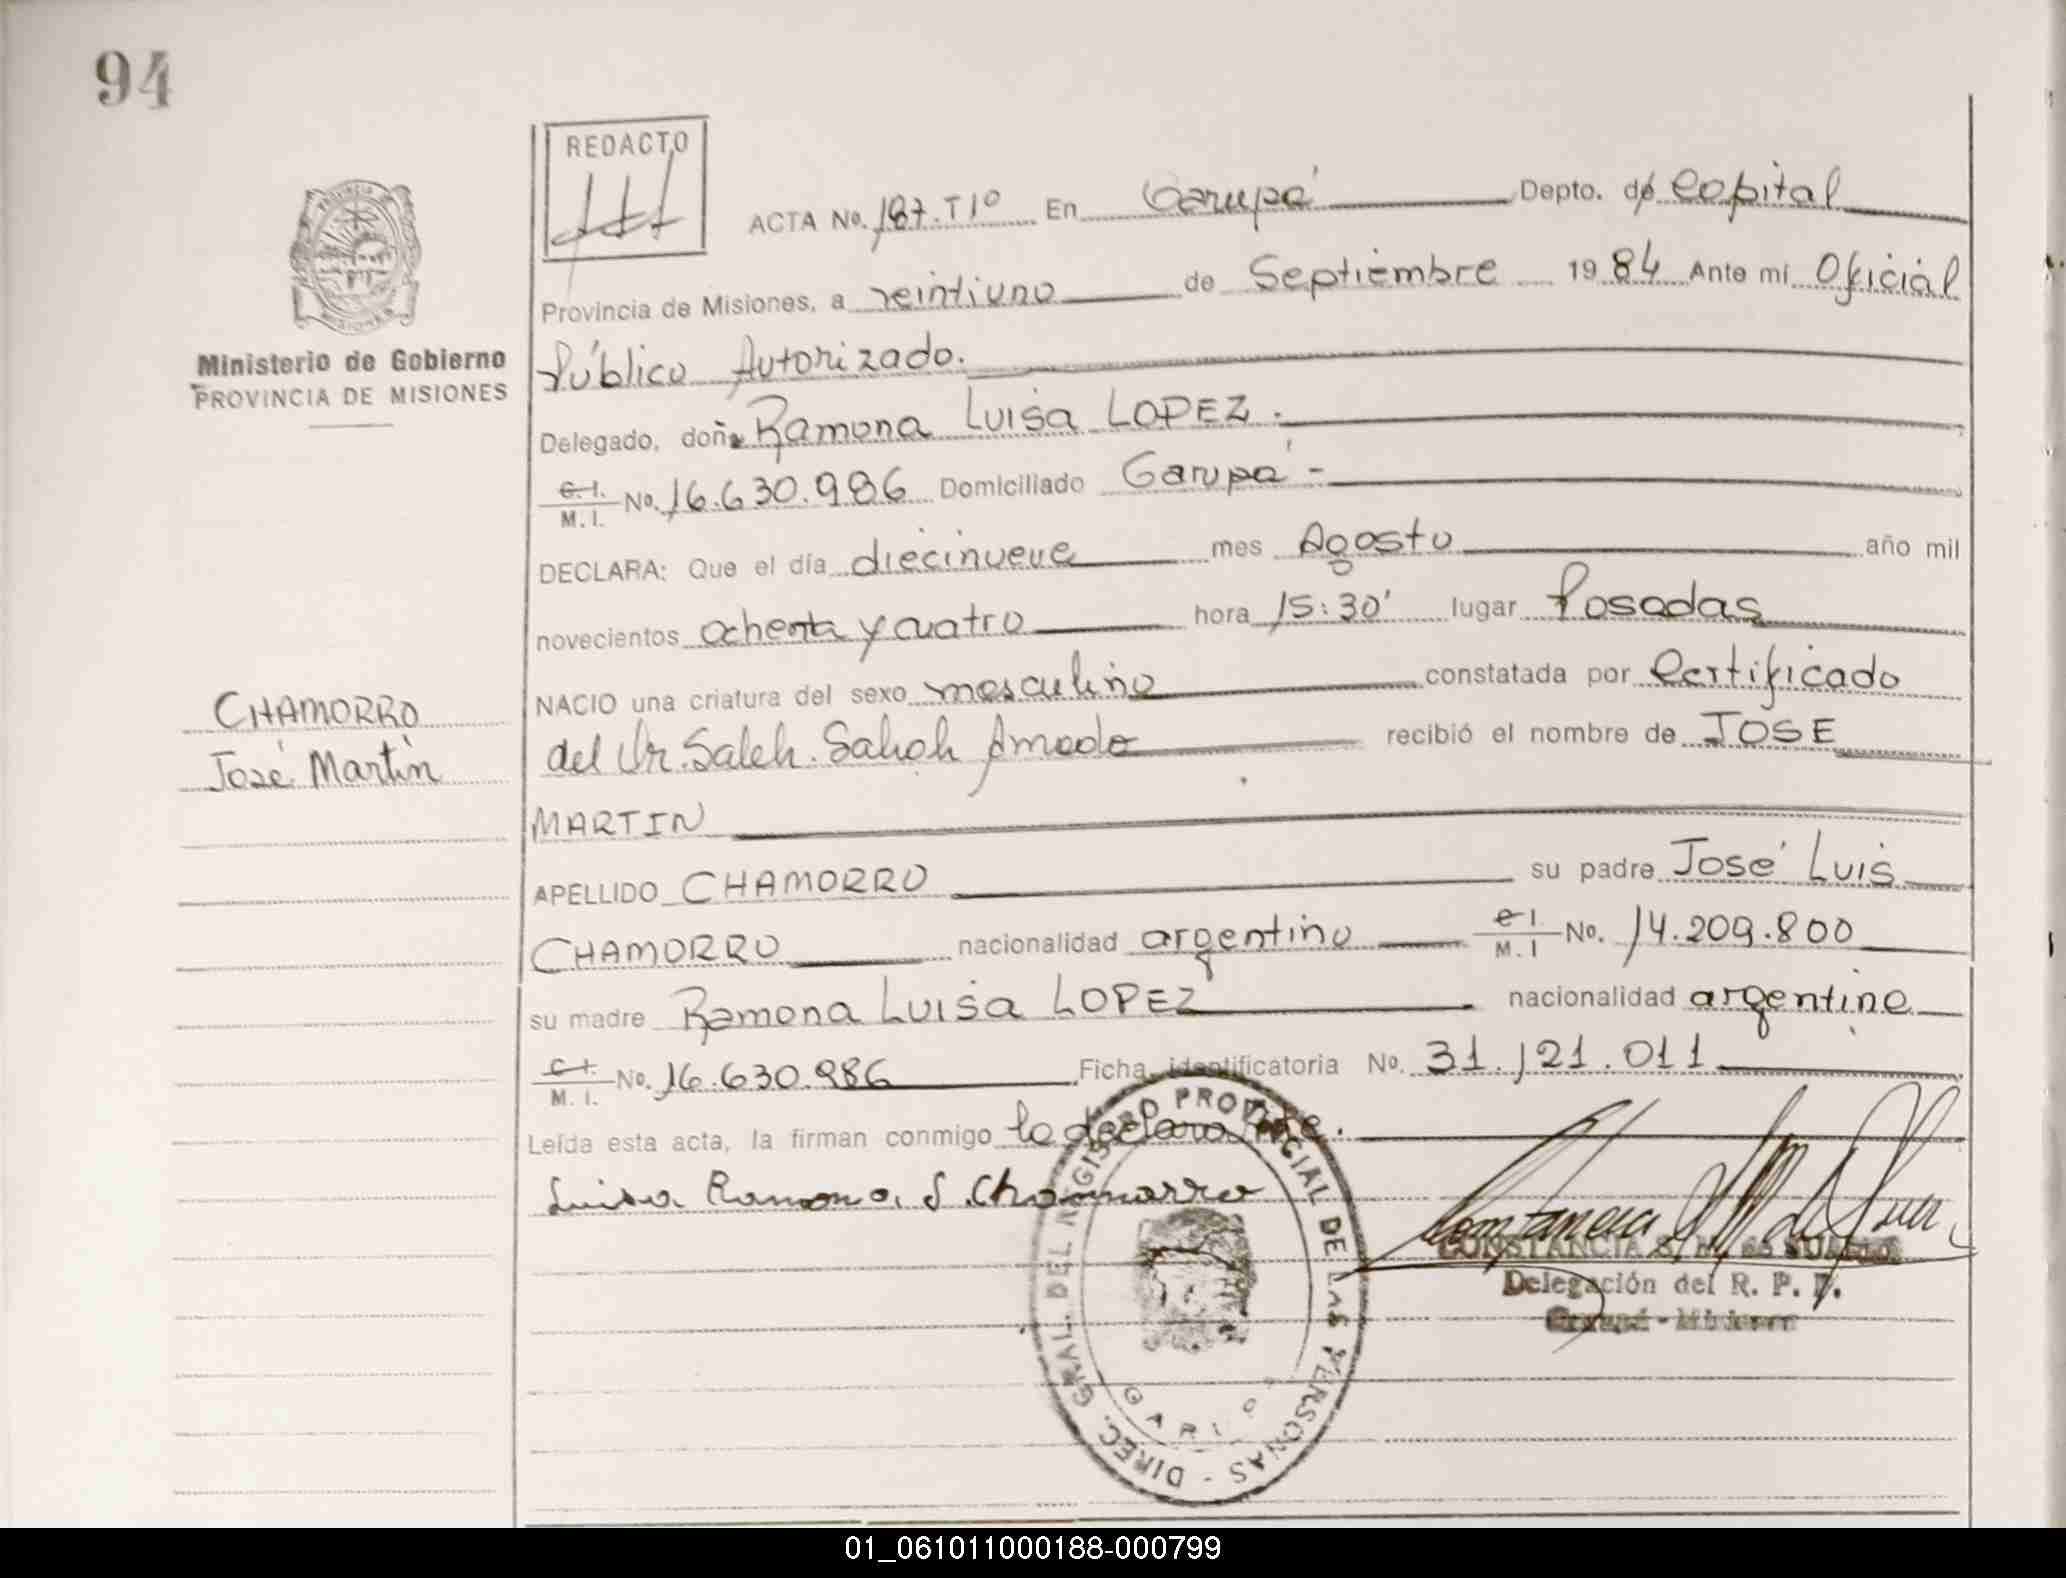 94
REDACTO
ACTA No. 187.T1º En Garupá Depto. de Capital
Provincia de Misiones, a veintiuno de Septiembre 1984 Ante mí Oficial
Público Autorizado.
Ministerio de Gobierno
PROVINCIA DE MISIONES
Delegado, doña Ramona Luisa LOPEZ.
C.I. M.I. No. 16.630.986 Domiciliado Garupá -
DECLARA: Que el día diecinueve mes Agosto año mil
novecientos ochenta y cuatro hora 15:30' lugar Posadas
CHAMORRO
José Martín
NACIO una criatura del sexo masculino constatada por Certificado
del Dr. Saleh. Amado recibió el nombre de JOSE
MARTIN
APELLIDO CHAMORRO su padre José Luis
CHAMORRO nacionalidad argentino C.I M.I No. 14.209.800
su madre Ramona Luisa LOPEZ nacionalidad argentina
C.I. M.I. No. 16.630.986 Ficha identificatoria No. 31.121.011
Leída esta acta, la firman conmigo la declarante.
Luisa Ramona. L. Chammorro
CONSTANCIA
Delegación del R. P. P.
Garupá - Misiones
DIREC. GRAL. DEL REGISTRO PROVINCIAL DE LAS PERSONAS -
01_061011000188-000799